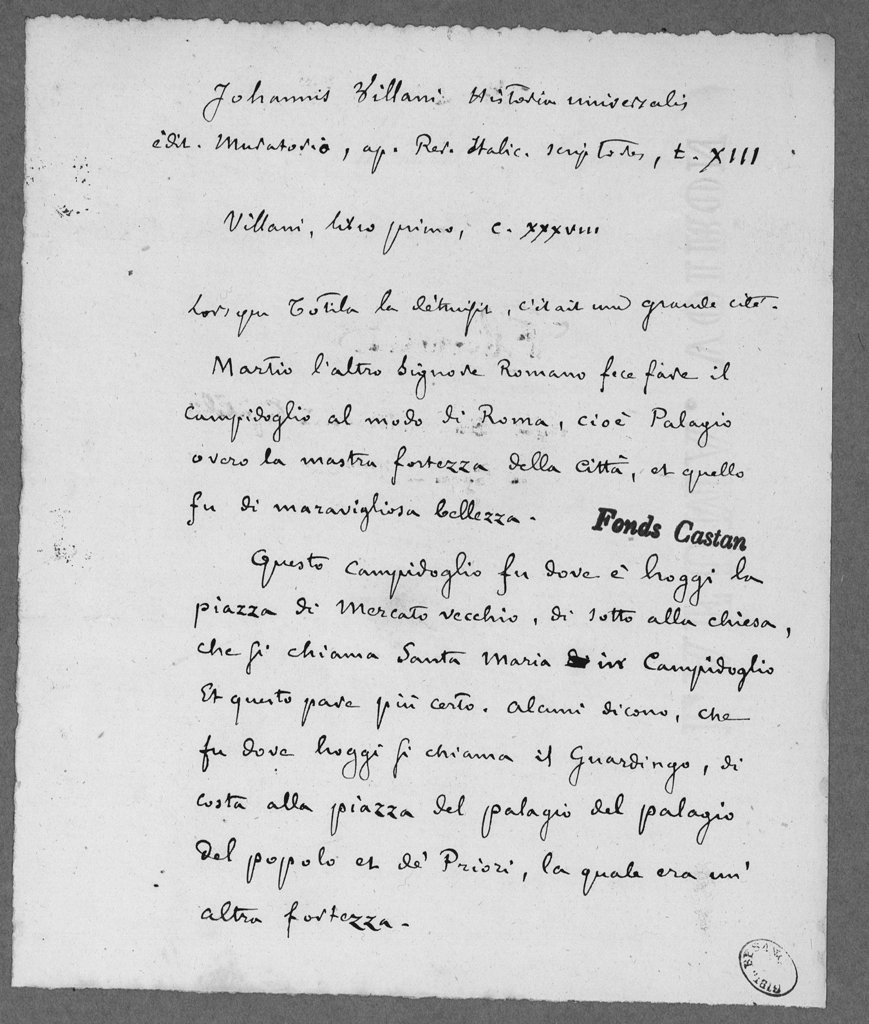 Johannis Villani Historia universalis
édit. Muratorio, ap. Rer. Italic. scriptores, t. XIII
Villani, libro primo, c. XXXVIII
Lorsque Totila la détruisit, c'était une grande cité.
Martio l'altro Signore Romano fece fare il
Campidoglio al modo di Roma, cioè Palagio
overo la mastra fortezza della Città, et quello
fu di maravigliosa bellezza.
Fonds Castan
Questo Campidoglio fu dove è hoggi la
piazza di Mercato vecchio, di sotto alla chiesa,
che si chiama Santa Maria in Campidoglio
Et questo pare più certo. Alcuni dicono, che
fu dove hoggi si chiama il Guardingo, di
costa alla piazza del palagio del palagio
del popolo et de' Priori, la quale era un'
altra fortezza.